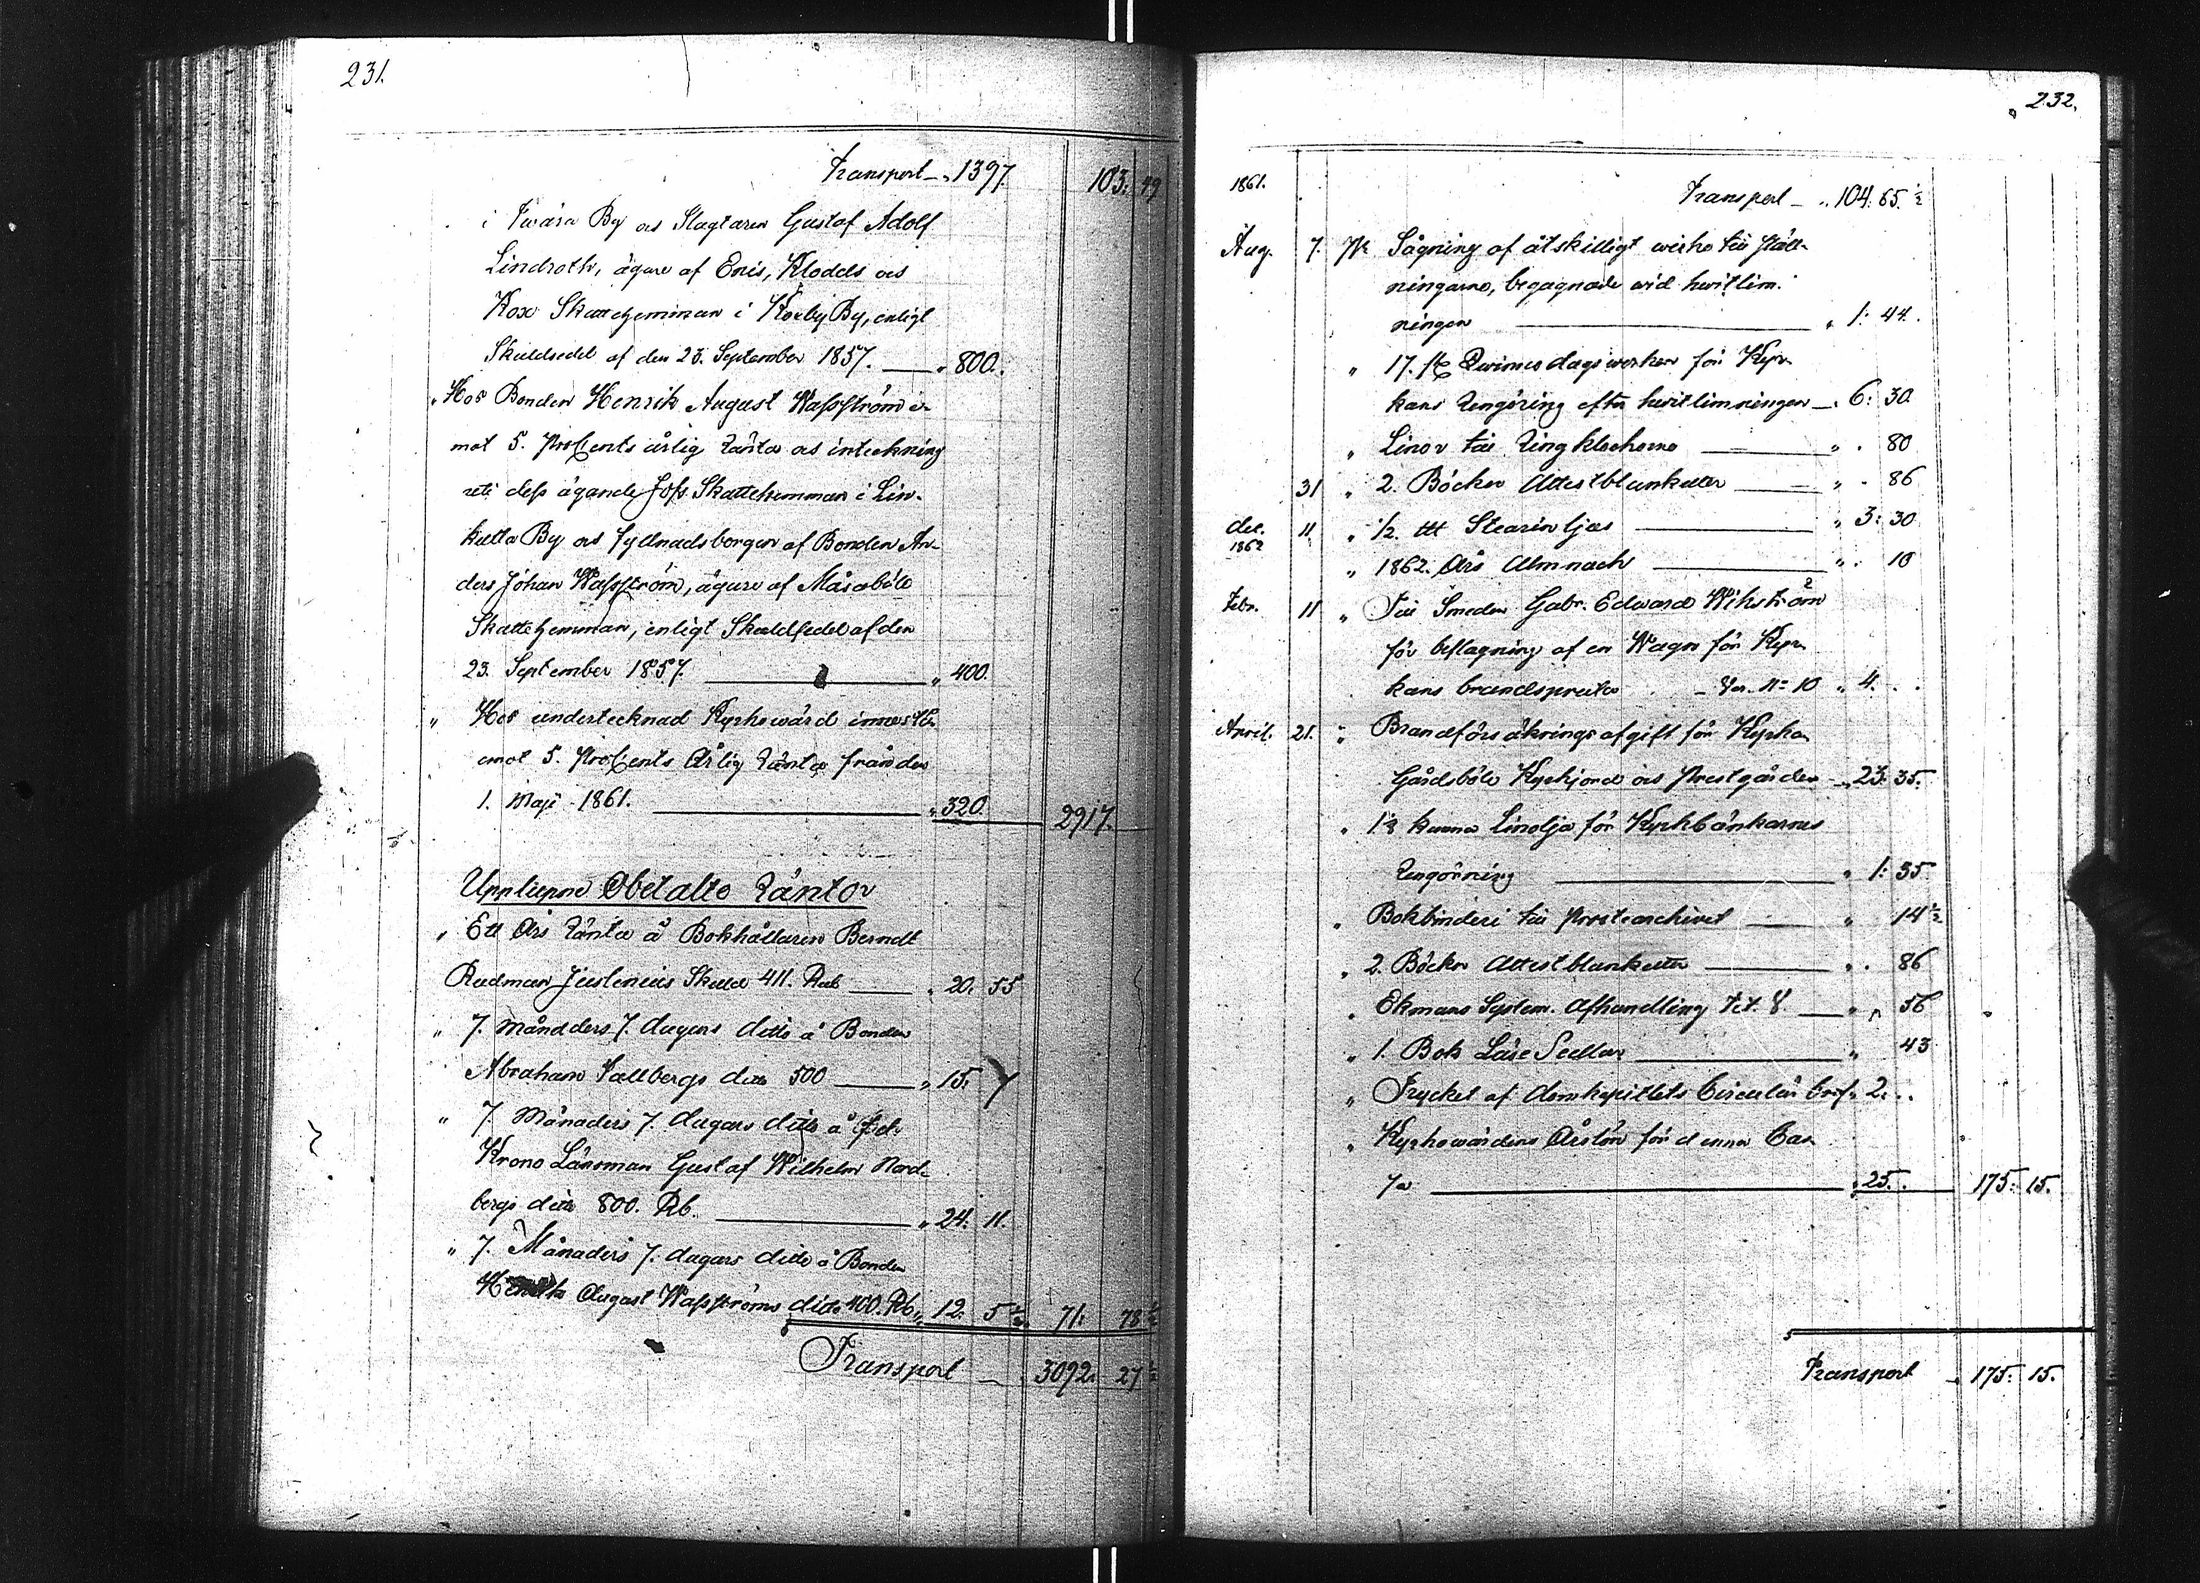 231.
Transport — „ 1397. 103: 49
i Twära By och Slagtaren Gustaf Adolf
Lindroth, ägare af Eris, Klodds och
Kox Skattehemman i Korby By, enligt
Skuldsedel af den 23. September 1857. — „ 800.
„ Hos Bonden Henrik August Wassström e-
mot 5. ProCents årlig Ränta och inteckning
uti dess ägande Joss Skattehemman i Lin-
kulla By och fyllnadsborgen af Bonden An-
ders Johan Wassström, ägare af Måsaböle
Skattehemman, enligt Skuldsedel af den
23. September 1857. — „ 400.
„ Hos undertecknad Kyrkowärd innestå
emot 5. ProCents Årlig Ränta från den
1. Maji 1861. — „ 320. 2917. —
Upplupne Obetalte Räntor
„ Ett Års Ränta å Bokhållaren Berndt
Rudman Juslenius Skuld 411. Rub — „ 20. 55
„ 7. Månaders 7. dagars ditto å Bonden
Abraham Sallbergs ditto 500 — „ 15. 7
„ 7. Månaders 7. dagars ditto å
Krono Länsman Gustaf Wilhelm Nord-
bergs ditto 800. Rb. — „ 24. 11.
„ 7. Månaders 7. dagars ditto å Bonden
Henrik August Wassströms ditto 400. Rb „ 12. 5 1/2 71: 78 1/2
Transport — 3092. 27 1/2
232.
1861. Transport — „ 104. 65. 1/2
Aug. 7. Sågning af åtskilligt wirke till ställ-
ningarne, begagnade wid hwitlim-
ningen — „ 1: 44.
„ 17. st Qwinnodagswerken för Kyr-
kans rengöring efter hwitlimningen — „ 6: 30
„ Linor till Ringklockorne — „ . 80
31 „ 2. Böcker Attestblanketter — „ . 86
dec. 11 „ 1/2. ttt Stearin ljus — „ 3: 30
1862
„ 1862. Års Almnach — „ . 10
Febr. 11 „ Till Smeden Gabr. Edward Wikström
för beslagning af en Wagn för Kyr-
kans brandspruta — Ver. N:o 10 „ 4. . .
April. 21. „ Brandförsäkringsafgift för Kyrkan
Gårdsböle Kyrkjord och Prestgården — „ 23: 35.
„ 1 1/2 kanna Linolja för Kyrkbänkarnes
Rengörning — „ 1: 35
„ Bokbinderi till Prostearchivet — „ 14 1/2
„ 2. Böcker Attestblanketter — „ . 86
„ Ekmans System. Afhandling Tit. 8. — „ „ 56
„ 1. Bok Läse Sedlar — „ 43
„ Trycket af Domkapitlets Circulär bref „ 2. . .
„ Kyrkowärdens Årslön för denna Cas-
sa — „ 25. . 175: 15.
Transport — „ 175: 15.